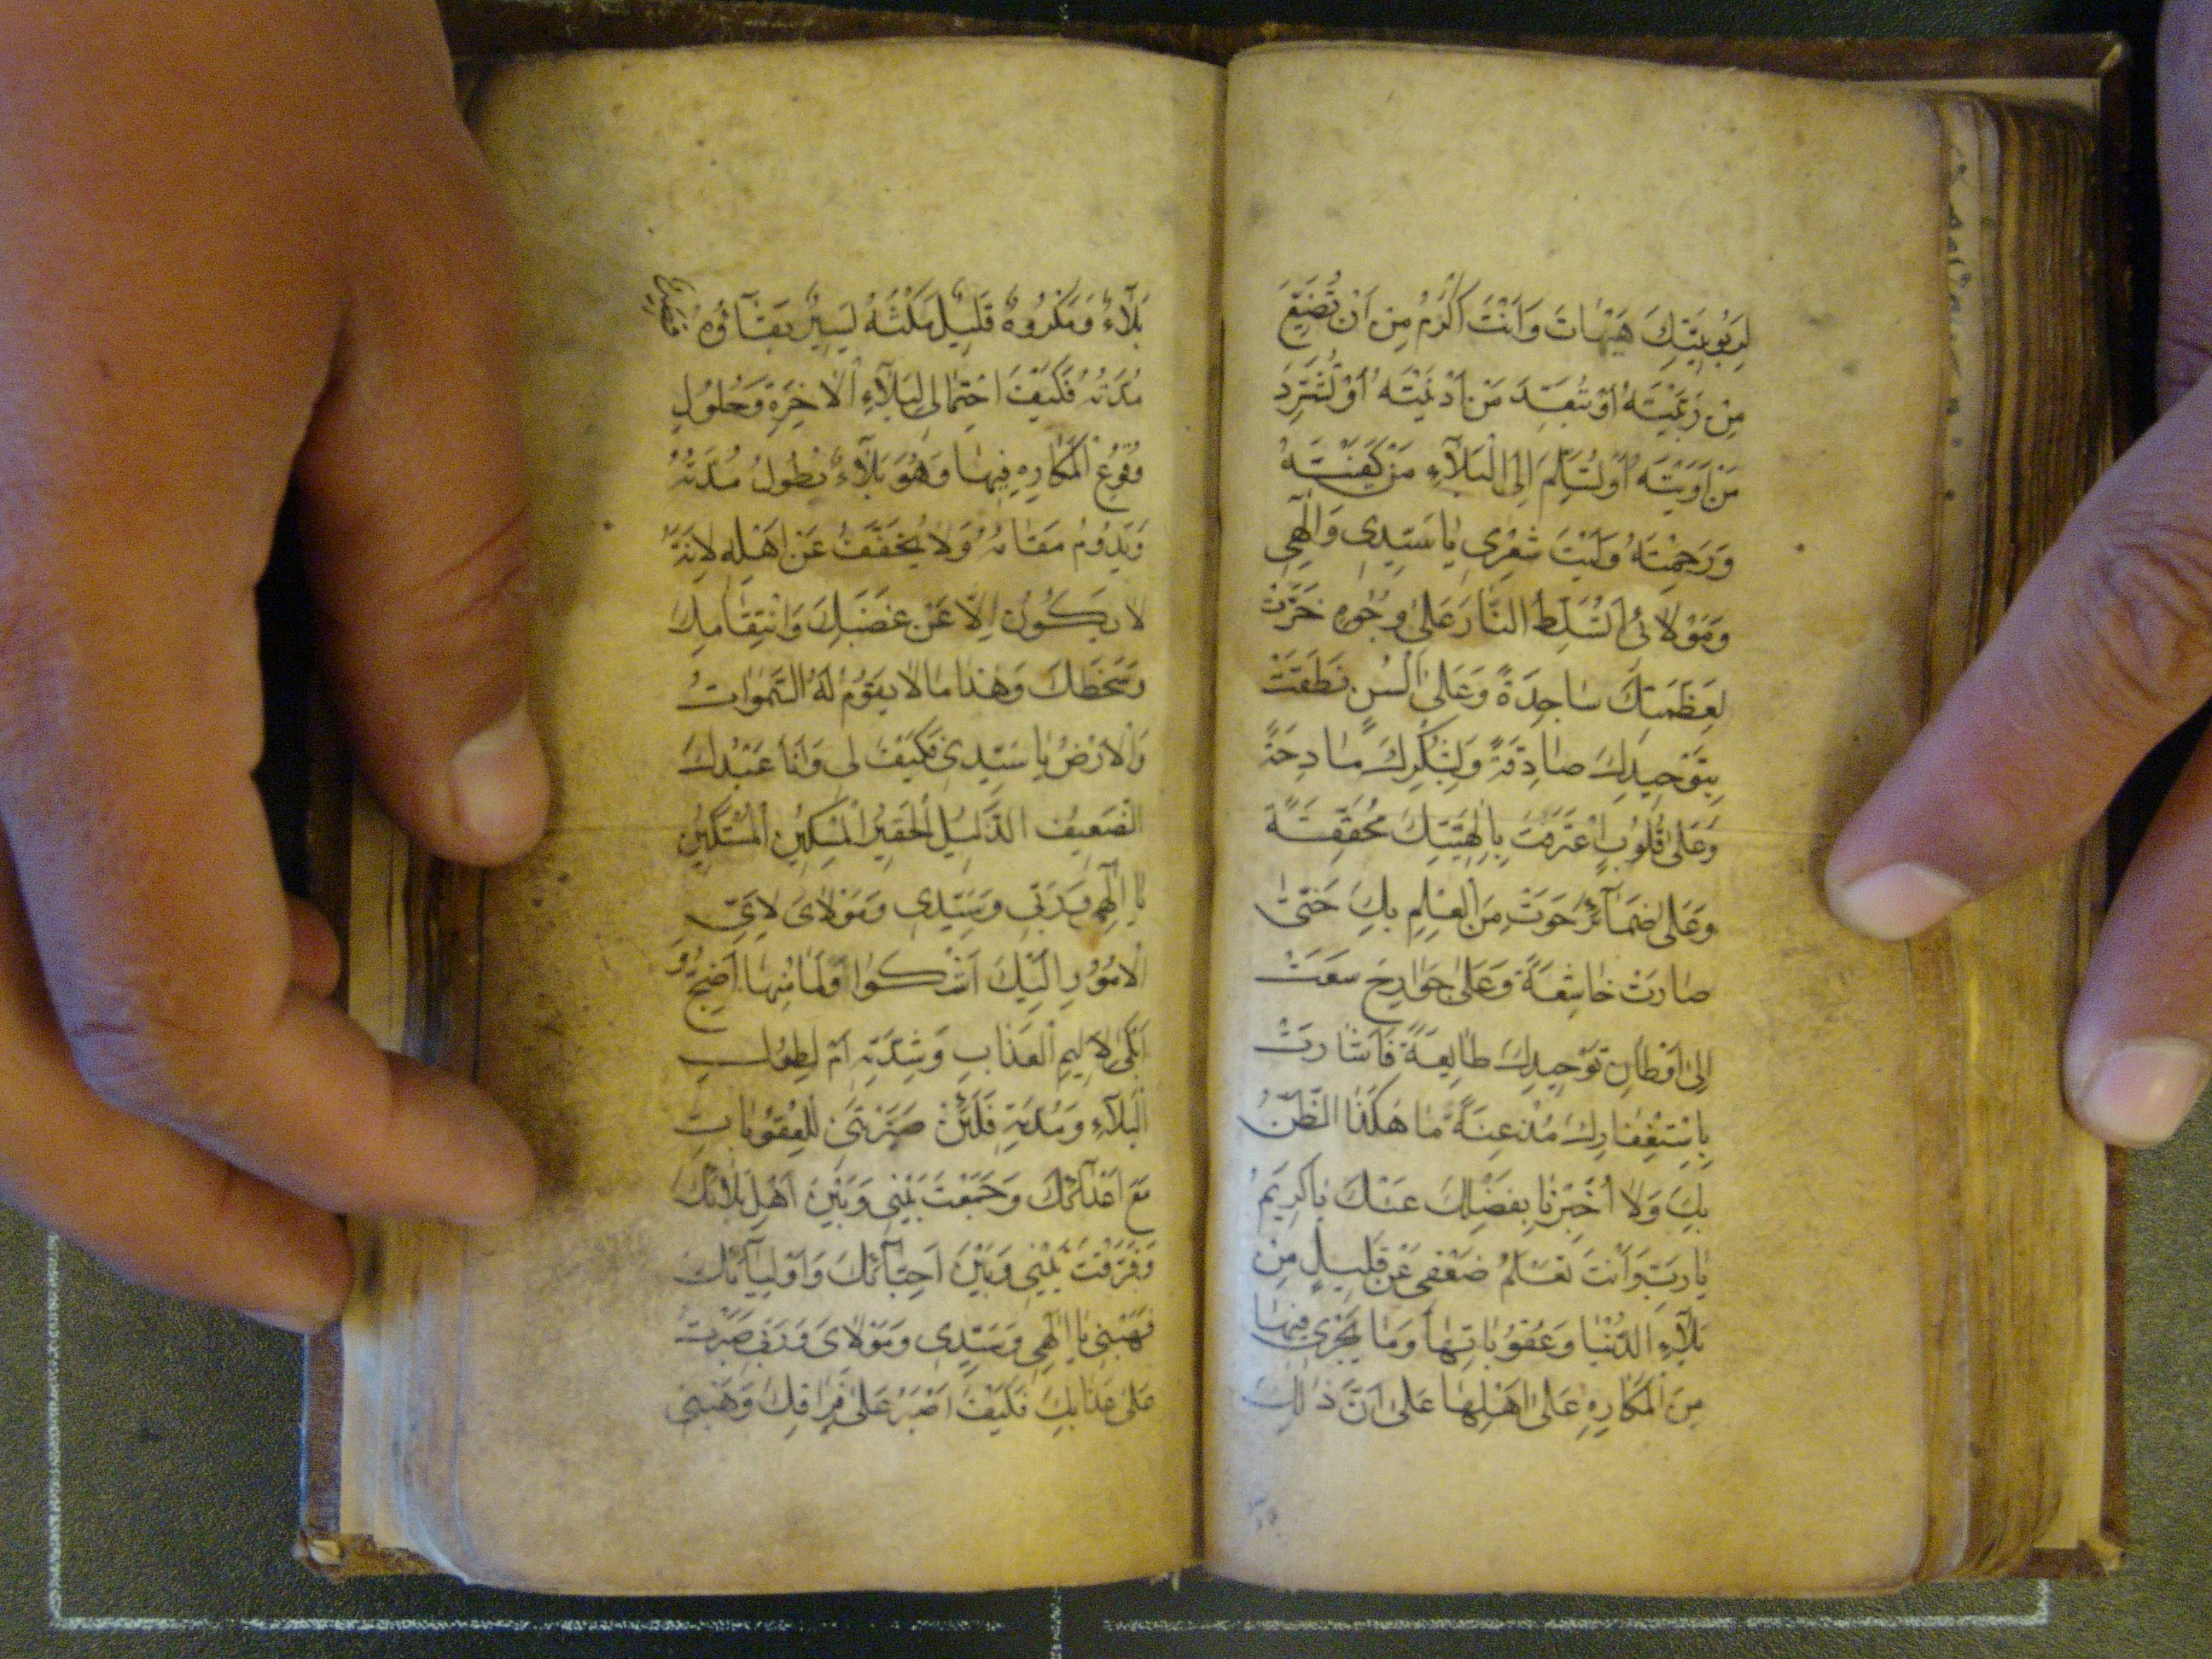 لِرُبُوبِيَّتِكَ هَيْهَاتَ وَاَنْتَ اَكْرَمُ مِنْ اَنْ تُضَيِّعَ
مَنْ رَبَّيْتَهُ اَوْ تُبَعِّدَ مَنْ اَدْنَيْتَهُ اَوْ تُشَرِّدَ
مَنْ اَوَيْتَهُ اَوْ تُسَلِّمَ اِلَى الْبَلَآءِ مَنْ كَفَيْتَهُ
وَرَحِمْتَهُ وَلَيْتَ شِعْرِى يَا سَيِّدِى وَاِلٰهِى
وَمَوْلَاىَ اَتُسَلِّطُ النَّارَ عَلٰى وُجُوهٍ خَرَّتْ
لِعَظَمَتِكَ سَاجِدَةً وَعَلٰى اَلْسُنٍ نَطَقَتْ
بِتَوْحِيدِكَ صَادِقَةً وَلِشُكْرِكَ مَادِحَةً
وَعَلٰى قُلُوبٍ اعْتَرَفَتْ بِاِلٰهِيَّتِكَ مُحَقِّقَةً
وَعَلٰى ضَمَآئِرَ حَوَتْ مِنَ الْعِلْمِ بِكَ حَتّٰى
صَارَتْ خَاشِعَةً وَعَلٰى جَوَارِحَ سَعَتْ
اِلٰى اَوْطَانِ تَوْحِيدِكَ طَايِعَةً فَاَشَارَتْ
بِاِسْتِغْفَارِكَ مُذْعِنَةً مَا هٰكَذَا الظَّنُّ
بِكَ وَلَا اُخْبِرْنَا بِفَضْلِكَ عَنْكَ يَا كَرِيمُ
يَا رَبِّ وَاَنْتَ تَعْلَمُ ضَعْفِى عَنْ قَلِيلٍ مِنْ
بَلَآءِ الدُّنْيَا وَعُقُوبَاتِهَا وَمَا يَجْرِى فِيهَا
مِنَ الْمَكَارِهِ عَلٰى اَهْلِهَا عَلٰى اَنَّ ذٰلِكَ
بَلَآءٌ وَمَكْرُوهٌ قَلِيلٌ مَكْثُهُ يَسِيرٌ بَقَآؤُهُ
مُدَّتُهُ فَكَيْفَ احْتِمَالِى لِبَلَآءِ الْاٰخِرَةِ وَحُلُولِ
وُقُوعِ الْمَكَارِهِ فِيهَا وَهُوَ بَلَآءٌ تَطُولُ مُدَّتُهُ
وَيَدُومُ مَقَامُهُ وَلَا يُخَفَّفُ عَنْ اَهْلِهِ لِاَنَّهُ
لَا يَكُونُ اِلَّا عَنْ غَضَبِكَ وَانْتِقَامِكَ
وَسَخَطِكَ وَهٰذَا مَا لَا يَقُومُ لَهُ السَّمٰوَاتُ
وَالْاَرْضُ يَا سَيِّدِى فَكَيْفَ لِى وَاَنَا عَبْدُكَ
الضَّعِيفُ الذَّلِيلُ الْحَقِيرُ الْمِسْكِينُ الْمُسْتَكِينُ
يَا اِلٰهِى وَرَبِّى وَسَيِّدِى وَمَوْلَاىَ لِاَىِّ
الْاُمُورِ اِلَيْكَ اَشْكُوا وَلِمَا مِنْهَا اَضِجُّ وَ
اَبْكِى لِاَلِيمِ الْعَذَابِ وَشِدَّتِهِ اَمْ لِطُولِ
الْبَلَآءِ وَمُدَّتِهِ فَلَئِنْ صَيَّرْتَنِى لِلْعُقُوبَاتِ
مَعَ اَعْدَآئِكَ وَجَمَعْتَ بَيْنِى وَبَيْنَ اَهْلِ بَلَآئِكَ
وَفَرَّقْتَ بَيْنِى وَبَيْنَ اَحِبَّآئِكَ وَاَوْلِيَآئِكَ
فَهَبْنِى يَا اِلٰهِى وَسَيِّدِى وَمَوْلَاىَ وَرَبِّى صَبَرْتُ
عَلٰى عَذَابِكَ فَكَيْفَ اَصْبِرُ عَلٰى فِرَاقِكَ وَهَبْنِى